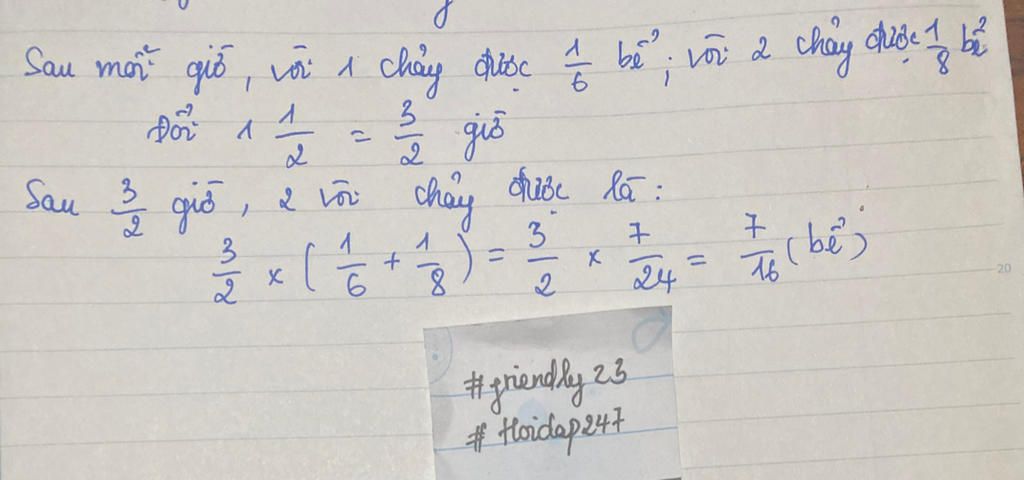 Sau mỗi giờ, vòi 1 chảy được 1/6 bể; vòi 2 chảy được 1/8 bể
Đổi 1 1/2 = 3/2 giờ
Sau 3/2 giờ, 2 vòi chảy được là:
3/2 × (1/6 + 1/8) = 3/2 × 7/24 = 7/16 (bể)
20
#friendly23
#Hoidap247